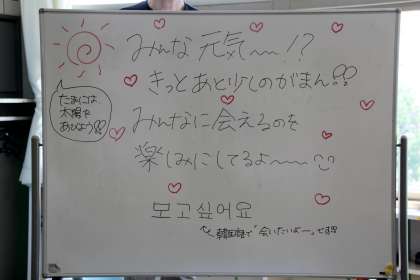 みんな元気〜〜!?
きっとあと少しのがまん!!
たまには、
太陽を
あびよう!!
みんなに会えるのを
楽しみにしてるよ〜〜〜
모고싶어요
韓国語で「会いたいよー」です